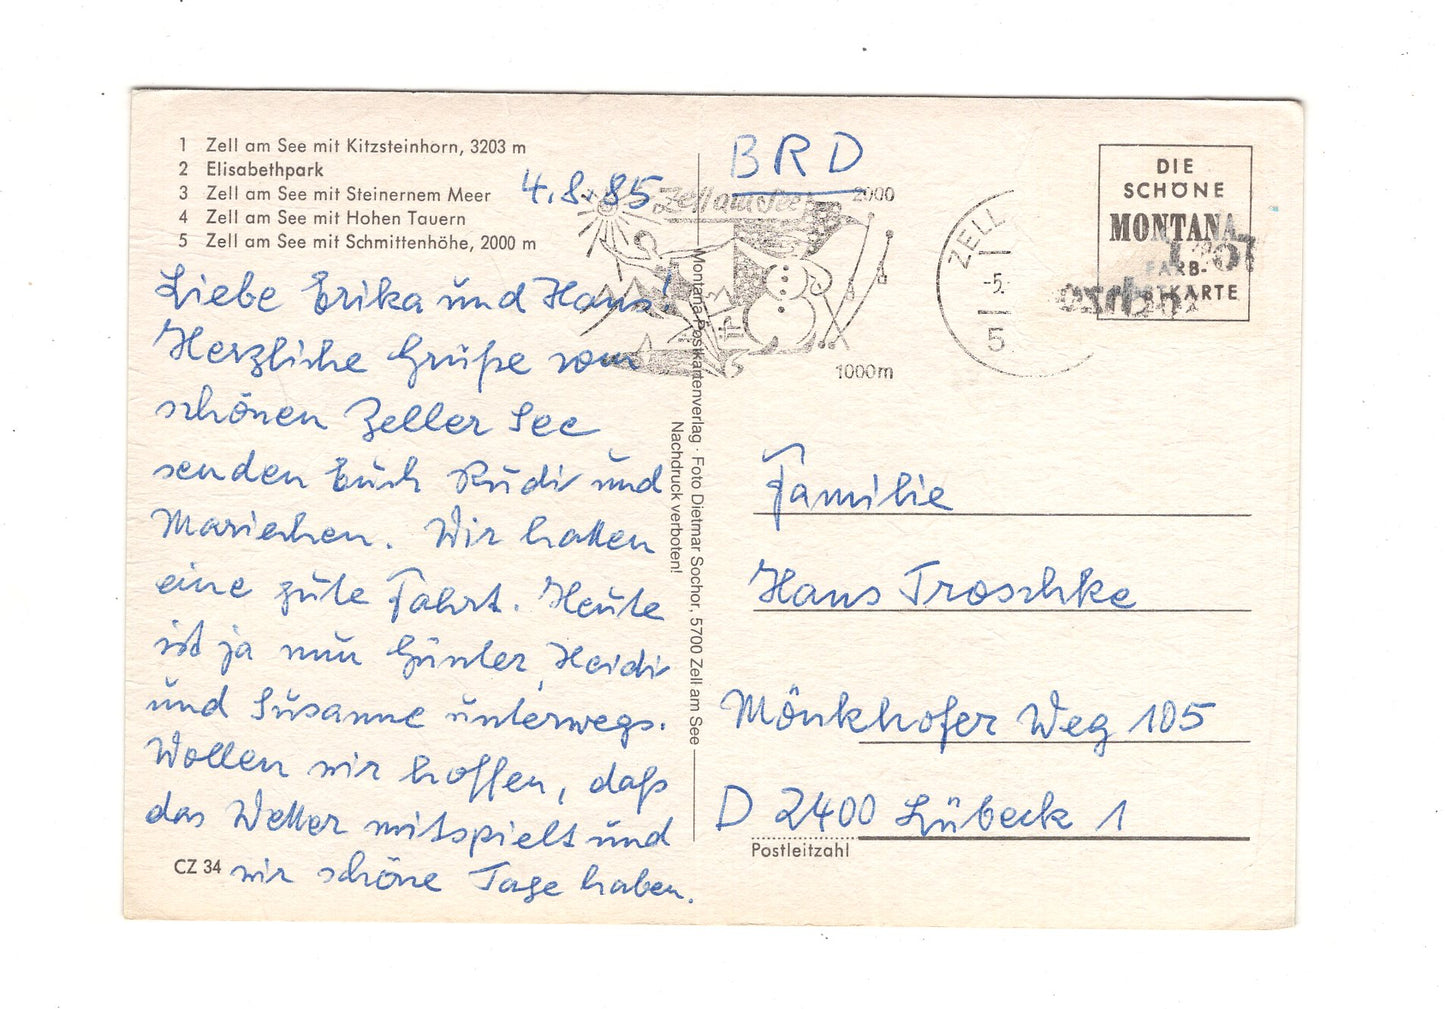 1 Zell am See mit Kitzsteinhorn, 3203 m
2 Elisabethpark
3 Zell am See mit Steinernem Meer
4 Zell am See mit Hohen Tauern
5 Zell am See mit Schmittenhöhe, 2000 m
4.8.85
Liebe Erika und Hans!
Herzliche Grüße vom
schönen Zeller See
senden Euch Rudi und
Mariechen. Wir hatten
eine gute Fahrt. Heute
ist ja nun Günter, Heidi
und Susanne unterwegs.
Wollen wir hoffen, daß
das Wetter mitspielt und
wir schöne Tage haben.
CZ 34
Montana-Postkartenverlag · Foto Dietmar Sochor, 5700 Zell am See
Nachdruck verboten!
BRD
Zell am See
2000
1000m
ZELL
-5.
5
DIE
SCHÖNE
MONTANA
FARB-
POSTKARTE
Familie
Hans Troschke
Mönkhofer Weg 105
D 2400 Lübeck 1
Postleitzahl